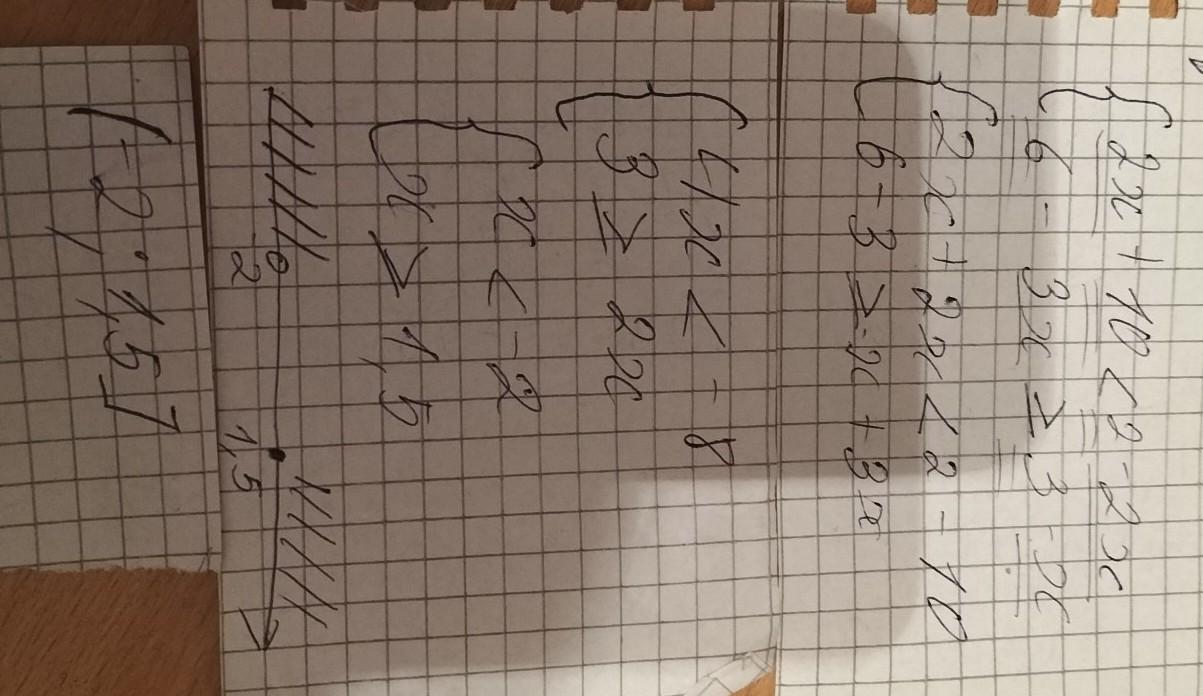 2x + 10 < 2 - 2x
6 - 3x ≥ 3 - x
2x + 2x < 2 - 10
6 - 3 ≥ -x + 3x
4x < -8
3 ≥ 2x
x < -2
x ≥ 1,5
-2 1,5
(-2; 1,5]